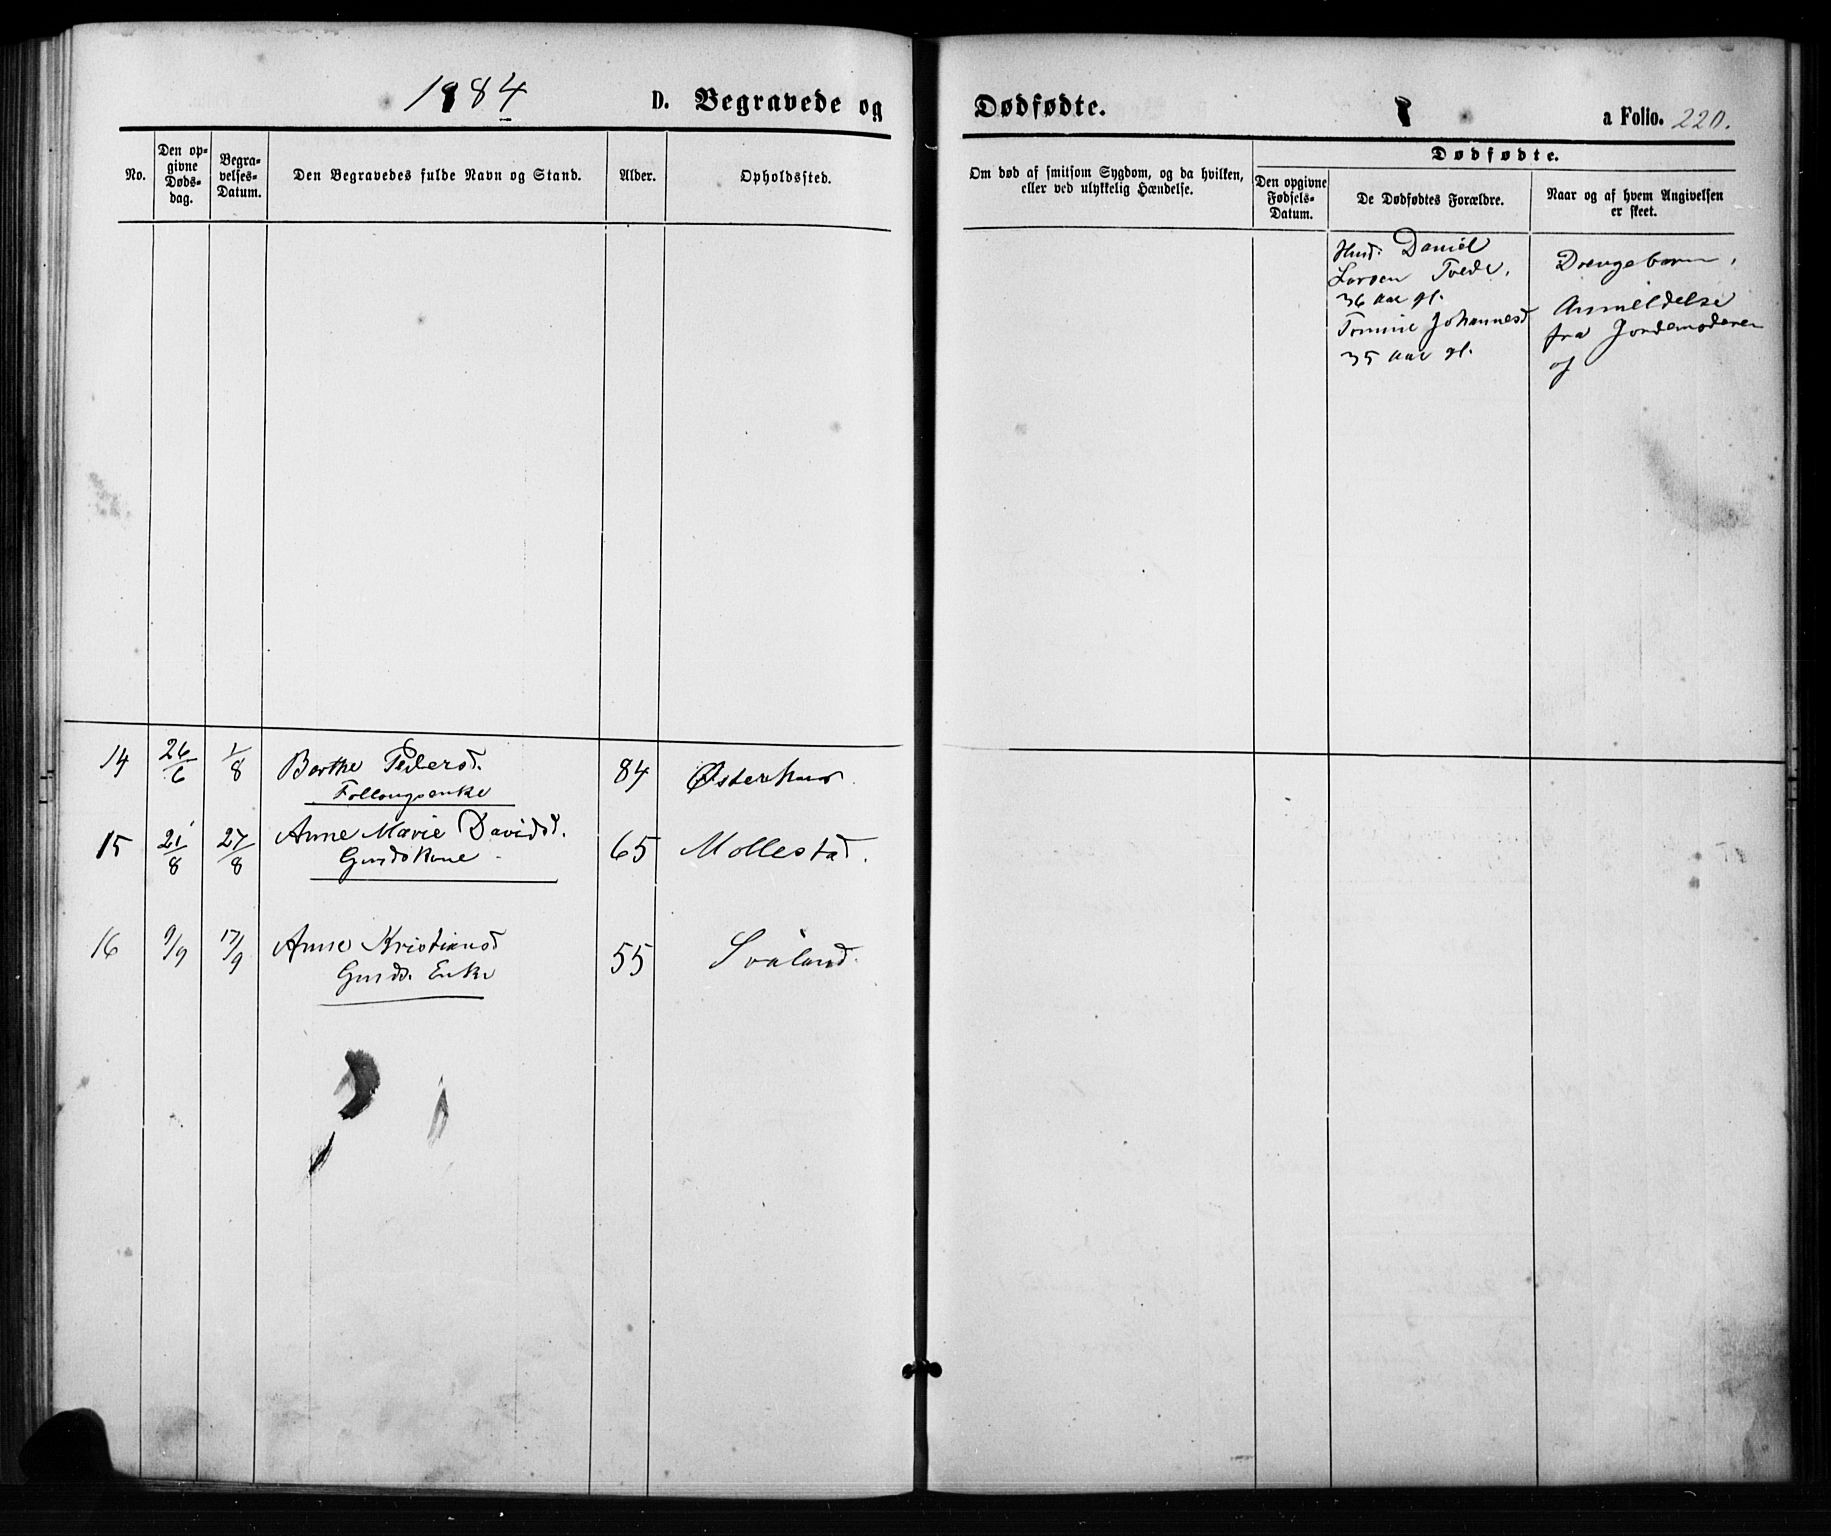 1884
D. Begravede og
Dødfødte.
a Folio. 220.
No.
Den op-
givne
Døds-
dag.
Begra-
velses-
Datum.
Den Begravedes fulde Navn og Stand.
Alder.
Opholdssted.
Om død af smitsom Sygdom, og da hvilken,
eller ved ulykkelig Hændelse.
Dødfødte.
Den opgivne
Fødsels-
Datum.
De Dødfødtes Forældre.
Naar og af hvem Angivelsen
er skeet.
Daniel
Larsen Tvede,
36 aar gl.
Johannesd
35 aar gl.
Drengebarn,
Anmeldelse
fra Jordemoderen
14 26/6 1/8 Berthe Pedersd. 84 Østerhus.
15 21/8 27/8 Anne Marie Davidsd. 65 Mollestad.
Gmdskone
16 9/9 17/9 Anne Kristiansd 55 Svaland.
Gmds. Enke